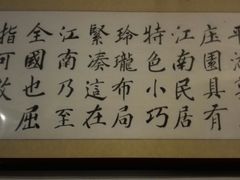 平
庄園具有
江南民居
特色小巧
玲瓏布局
緊凑這在
江南乃至
全國也屈
指可